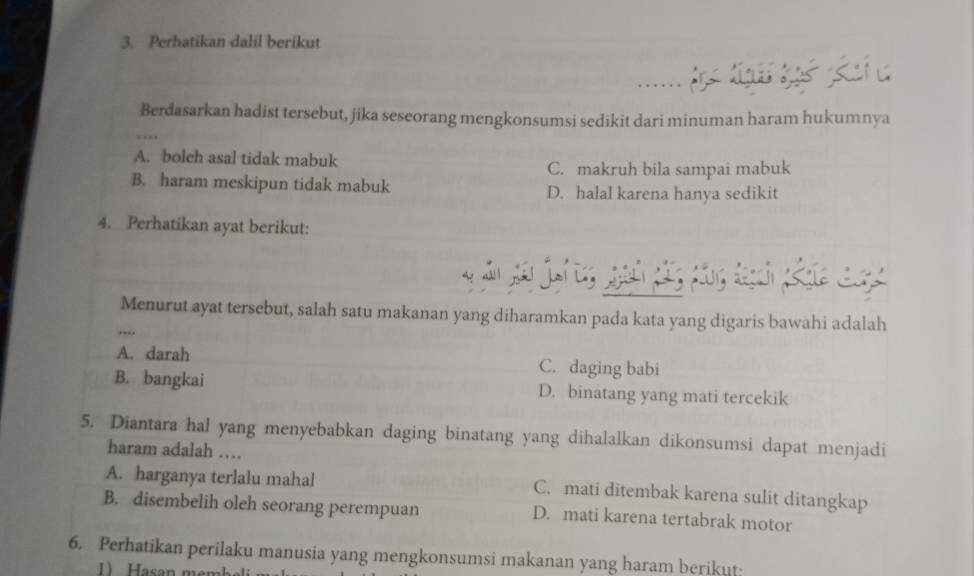 3. Perhatikan dalil berikut
مَا أَسْكَرَ كَثِيْرُهُ فَقَلِيْلُهُ حَرَامٌ ......
Berdasarkan hadist tersebut, jika seseorang mengkonsumsi sedikit dari minuman haram hukumnya
....
A. boleh asal tidak mabuk
B. haram meskipun tidak mabuk
C. makruh bila sampai mabuk
D. halal karena hanya sedikit
4. Perhatikan ayat berikut:
حُرِّمَتْ عَلَيْكُمُ الْمَيْتَةُ وَالدَّمُ وَلَحْمُ الْخِنْزِيْرِ وَمَا أُهِلَّ لِغَيْرِ اللهِ بِهِ
Menurut ayat tersebut, salah satu makanan yang diharamkan pada kata yang digaris bawahi adalah
....
A. darah
B. bangkai
C. daging babi
D. binatang yang mati tercekik
5. Diantara hal yang menyebabkan daging binatang yang dihalalkan dikonsumsi dapat menjadi
haram adalah ....
A. harganya terlalu mahal
B. disembelih oleh seorang perempuan
C. mati ditembak karena sulit ditangkap
D. mati karena tertabrak motor
6. Perhatikan perilaku manusia yang mengkonsumsi makanan yang haram berikut:
1) Hasan